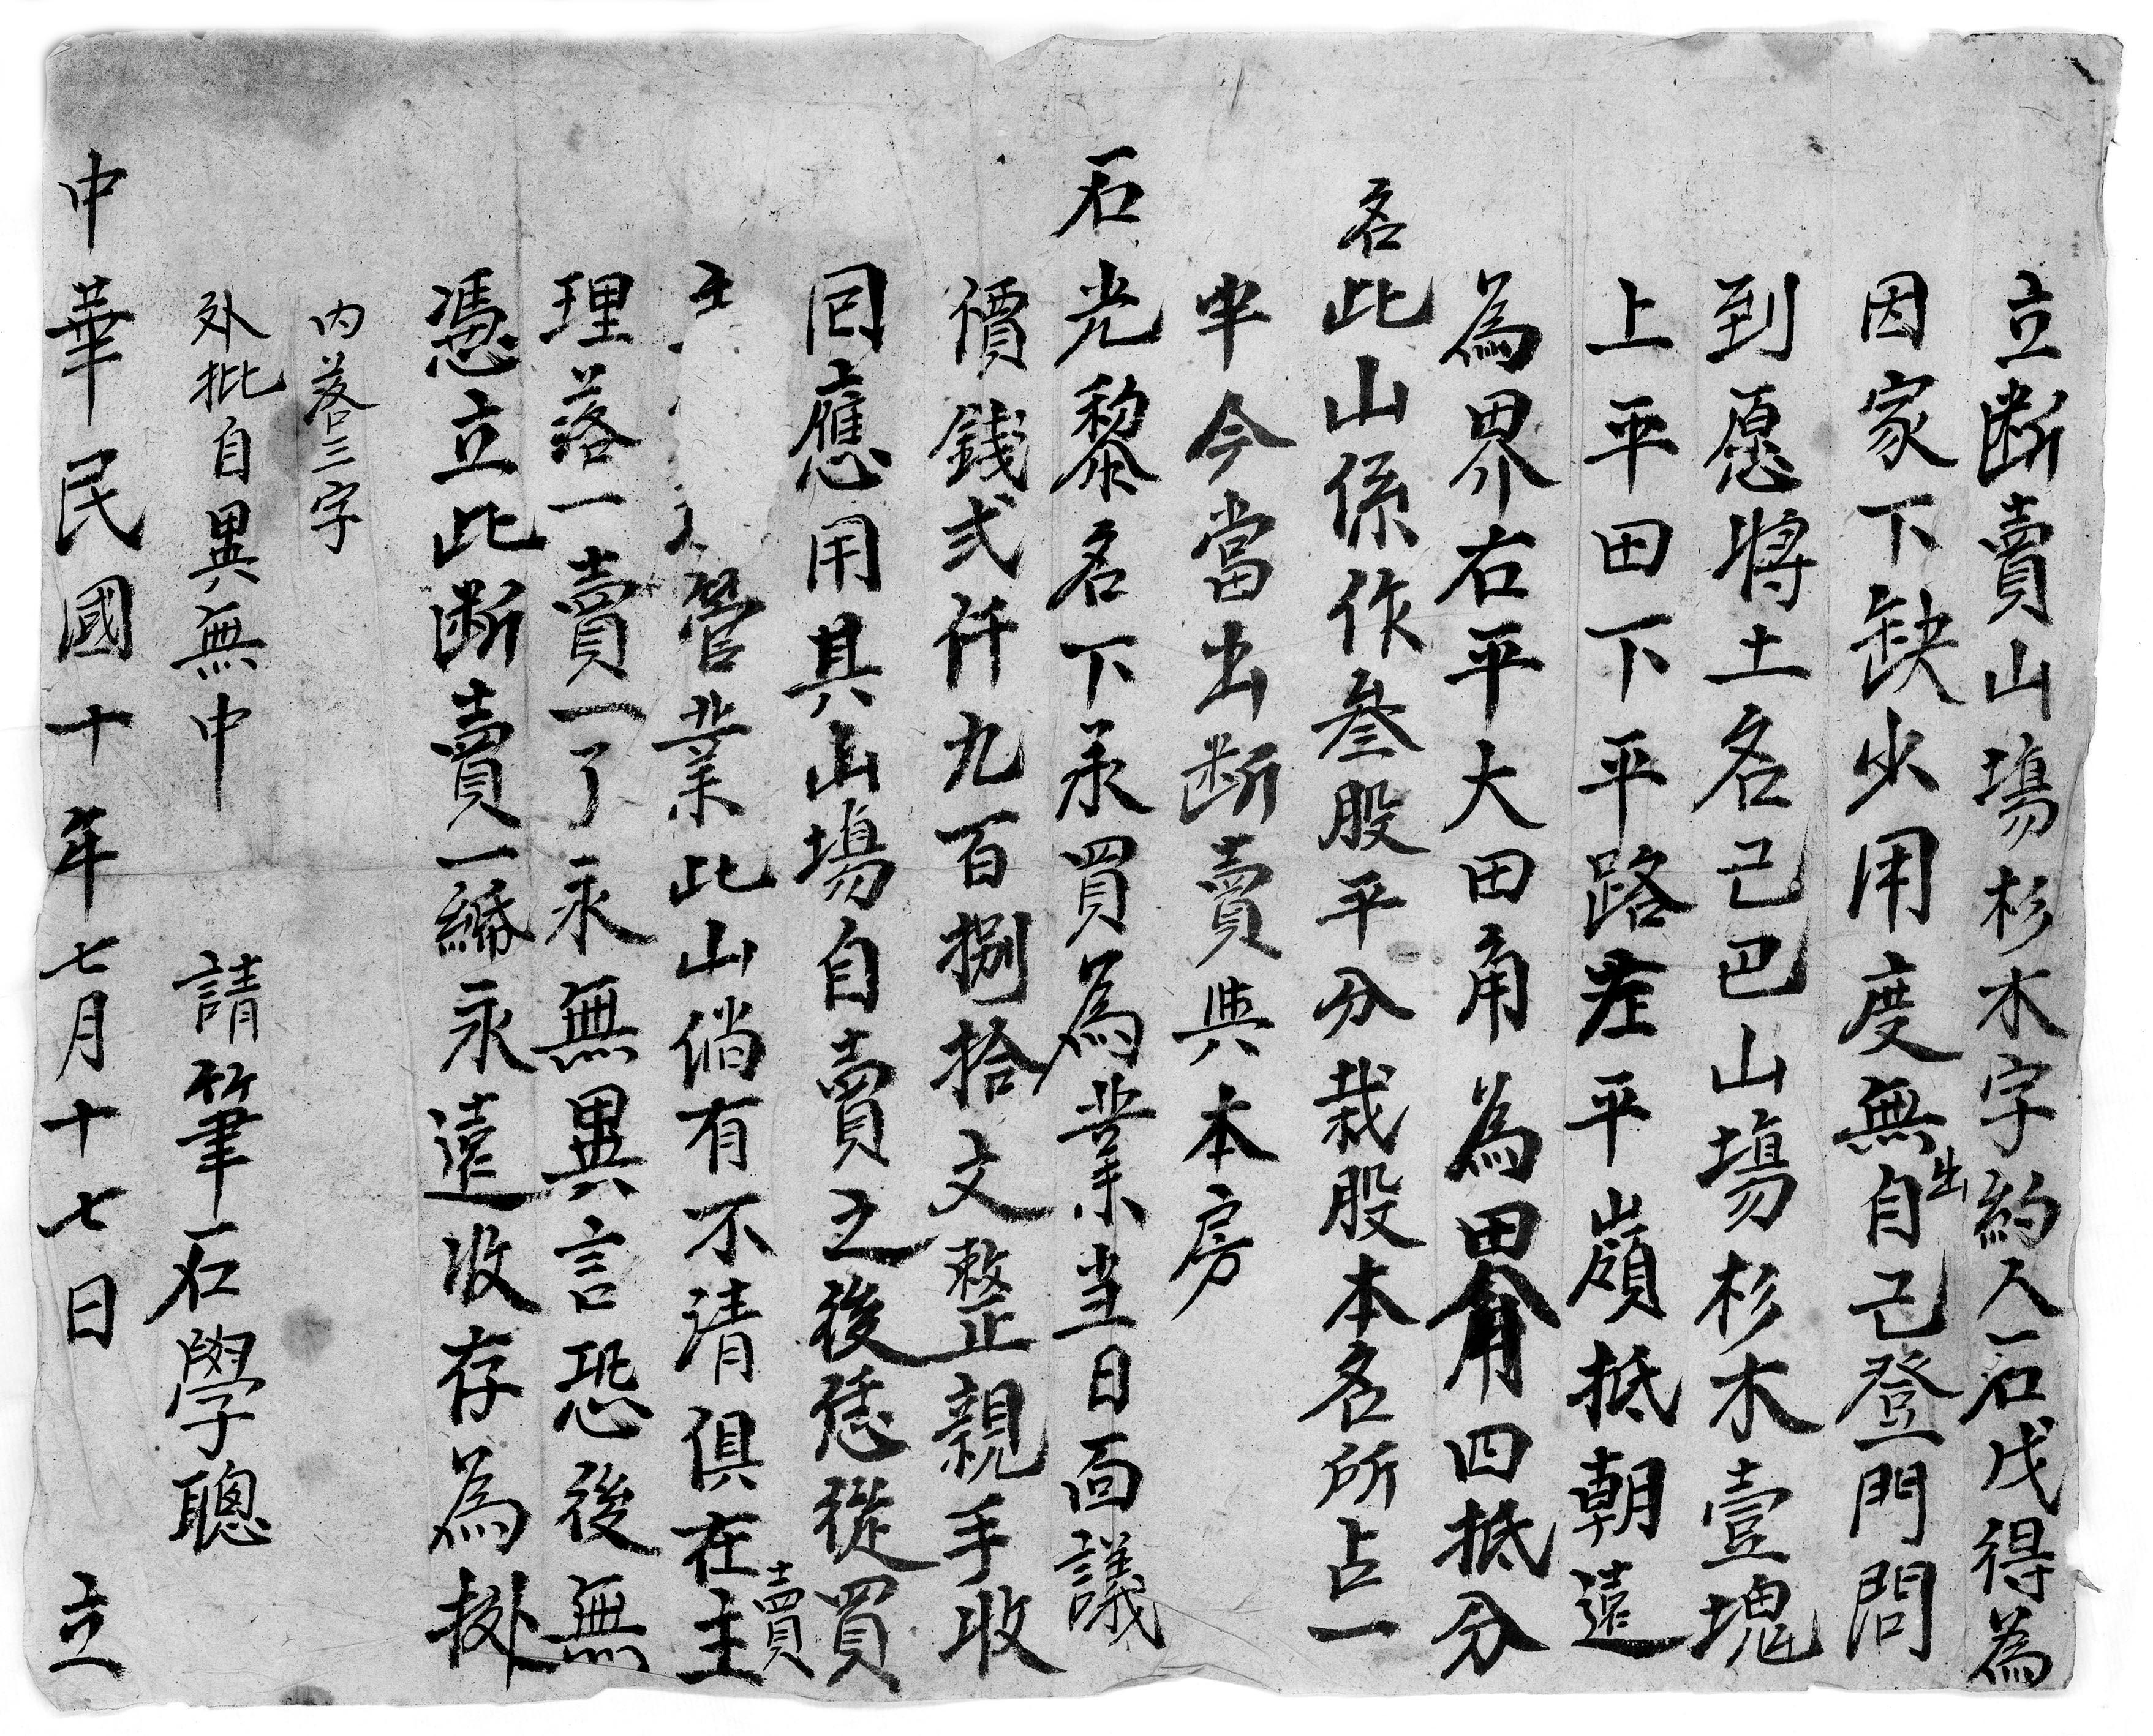 立断賣山塲杉木字約人石戊得為
因家下缺少用度無出自己登門問
到愿將土名己巴山塲杉木壹塊
上平田下平路左平嶺抵朝遠
為界右平大田角為界四抵分
名此山係作叁股平分栽股本名所占一
半今當出断賣與本房
石光黎名下承買為業当日面議
價錢弍仟九百捌拾文整親手收
回應用其山塲自賣之後恁從買
主管業此山倘有不清俱在賣主
理落一賣一了永無異言恐後無
憑立此断賣一紙永遠收存為據
内落三字
外批自異無中
請筆石學聰
中華民國十年七月十七日立